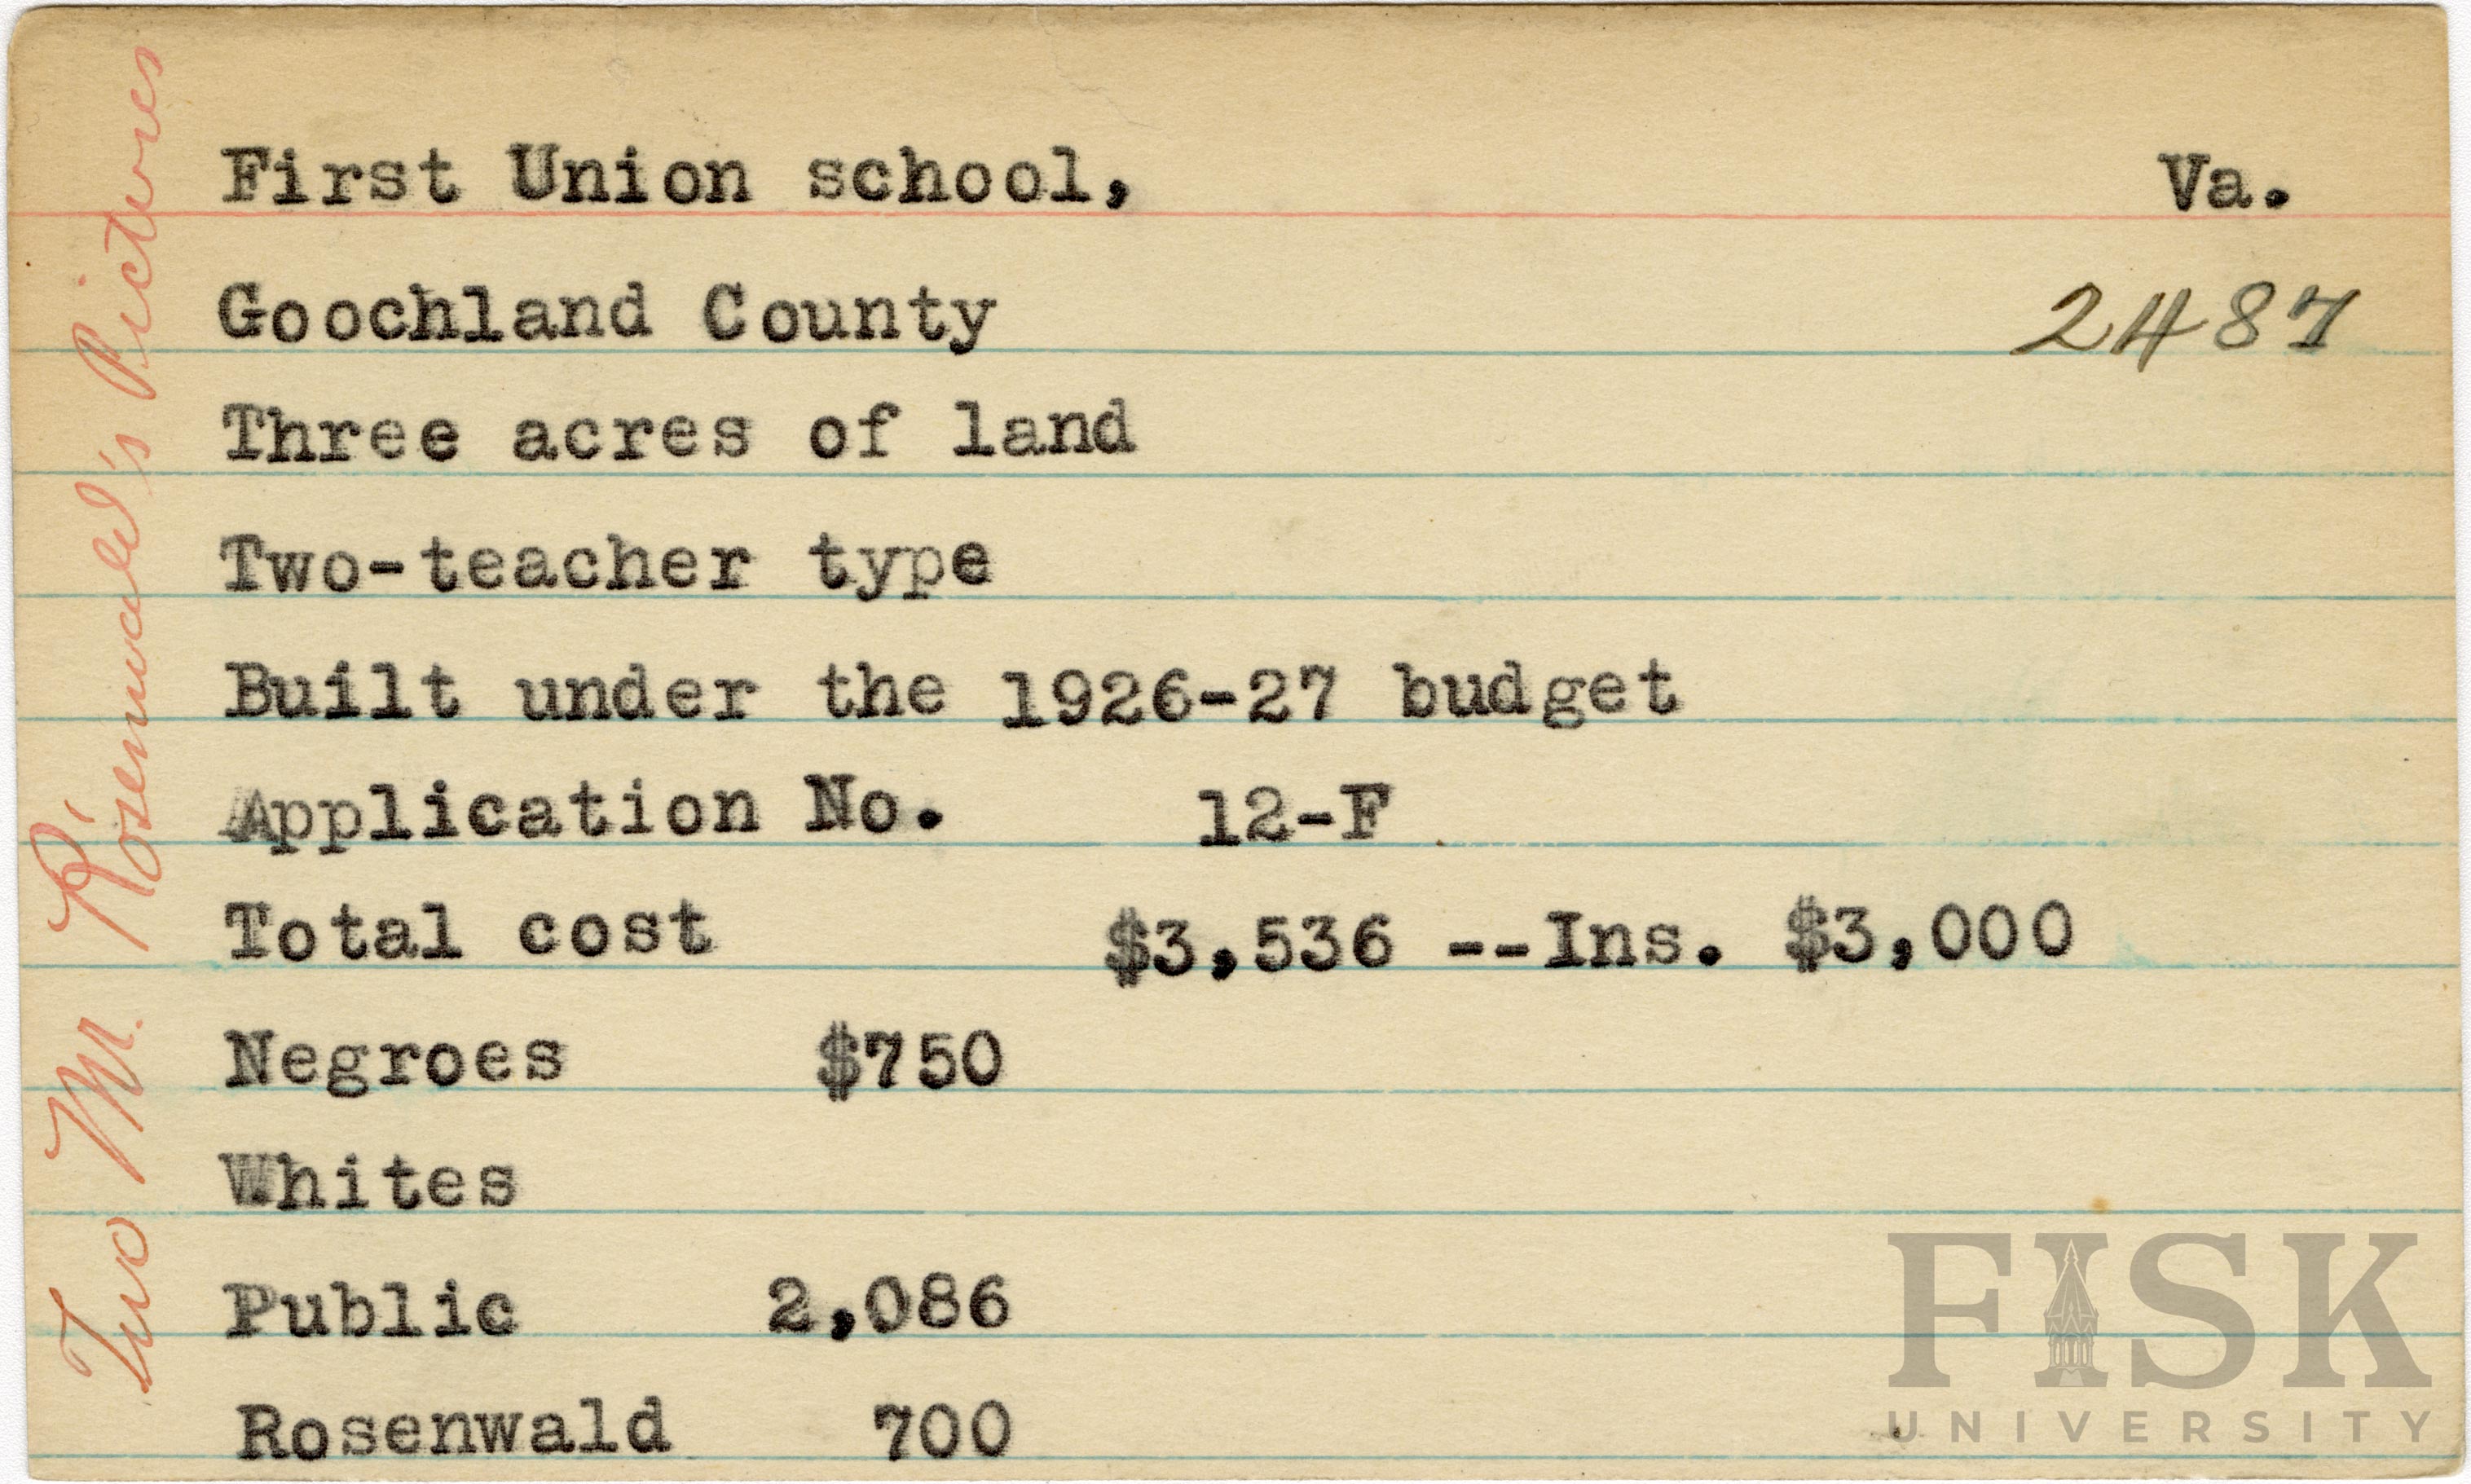 First Union school, Va.
Goochland County 2487
Three acres of land
Two-teacher type
Built under the 1926-27 budget
Application No. 12-F
Total cost $3,536 --Ins. $3,000
Negroes $750
Whites
Public 2,086
Rosenwald 700
Two Mr. Rosenwald's Pictures
FISK
UNIVERSITY